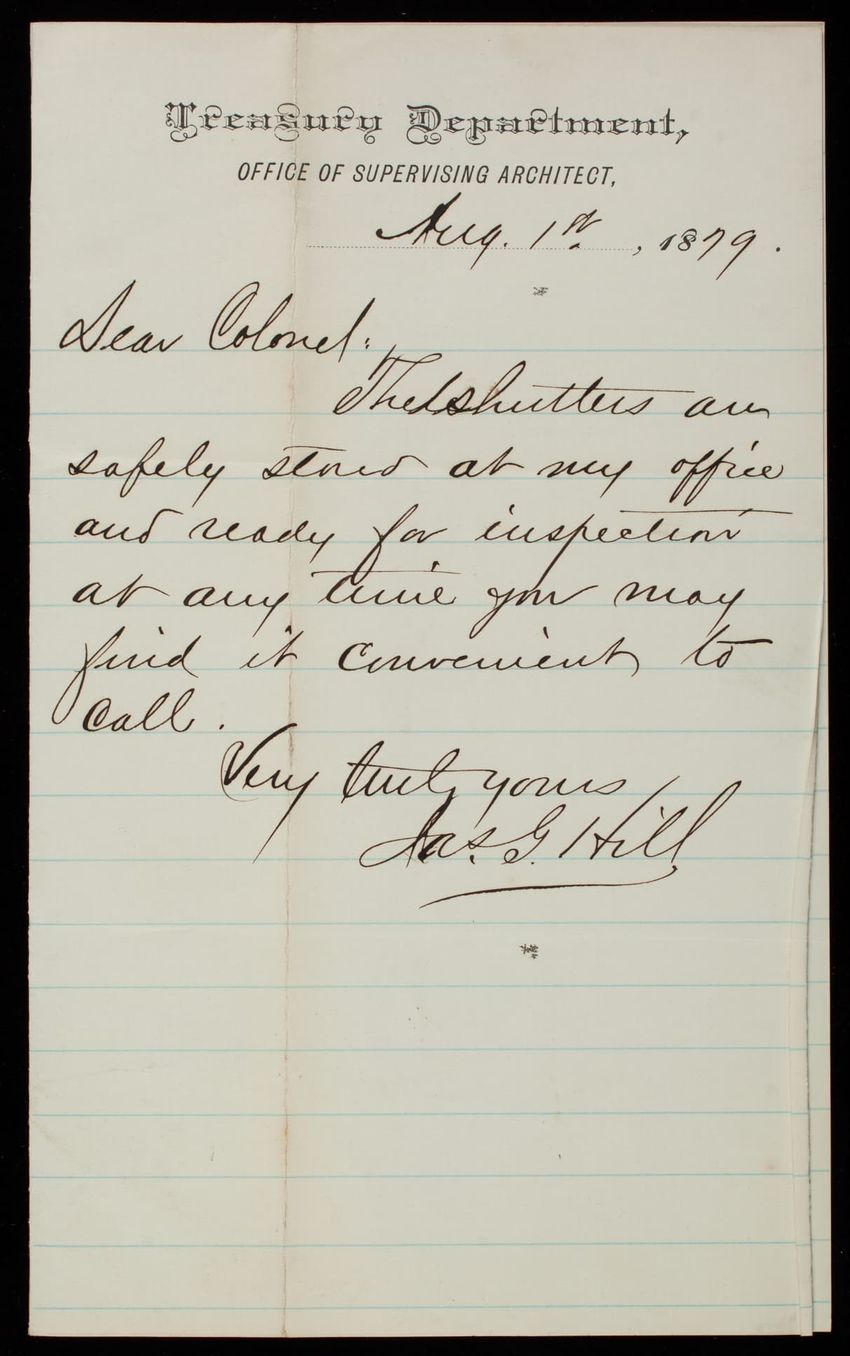 Treasury Department,
OFFICE OF SUPERVISING ARCHITECT,
Aug. 1st, 1879.
Dear Colonel:
The shutters are
safely stored at my office
and ready for inspection
at any time you may
find it convenient to
call.
Very truly yours
Jas. G. Hill